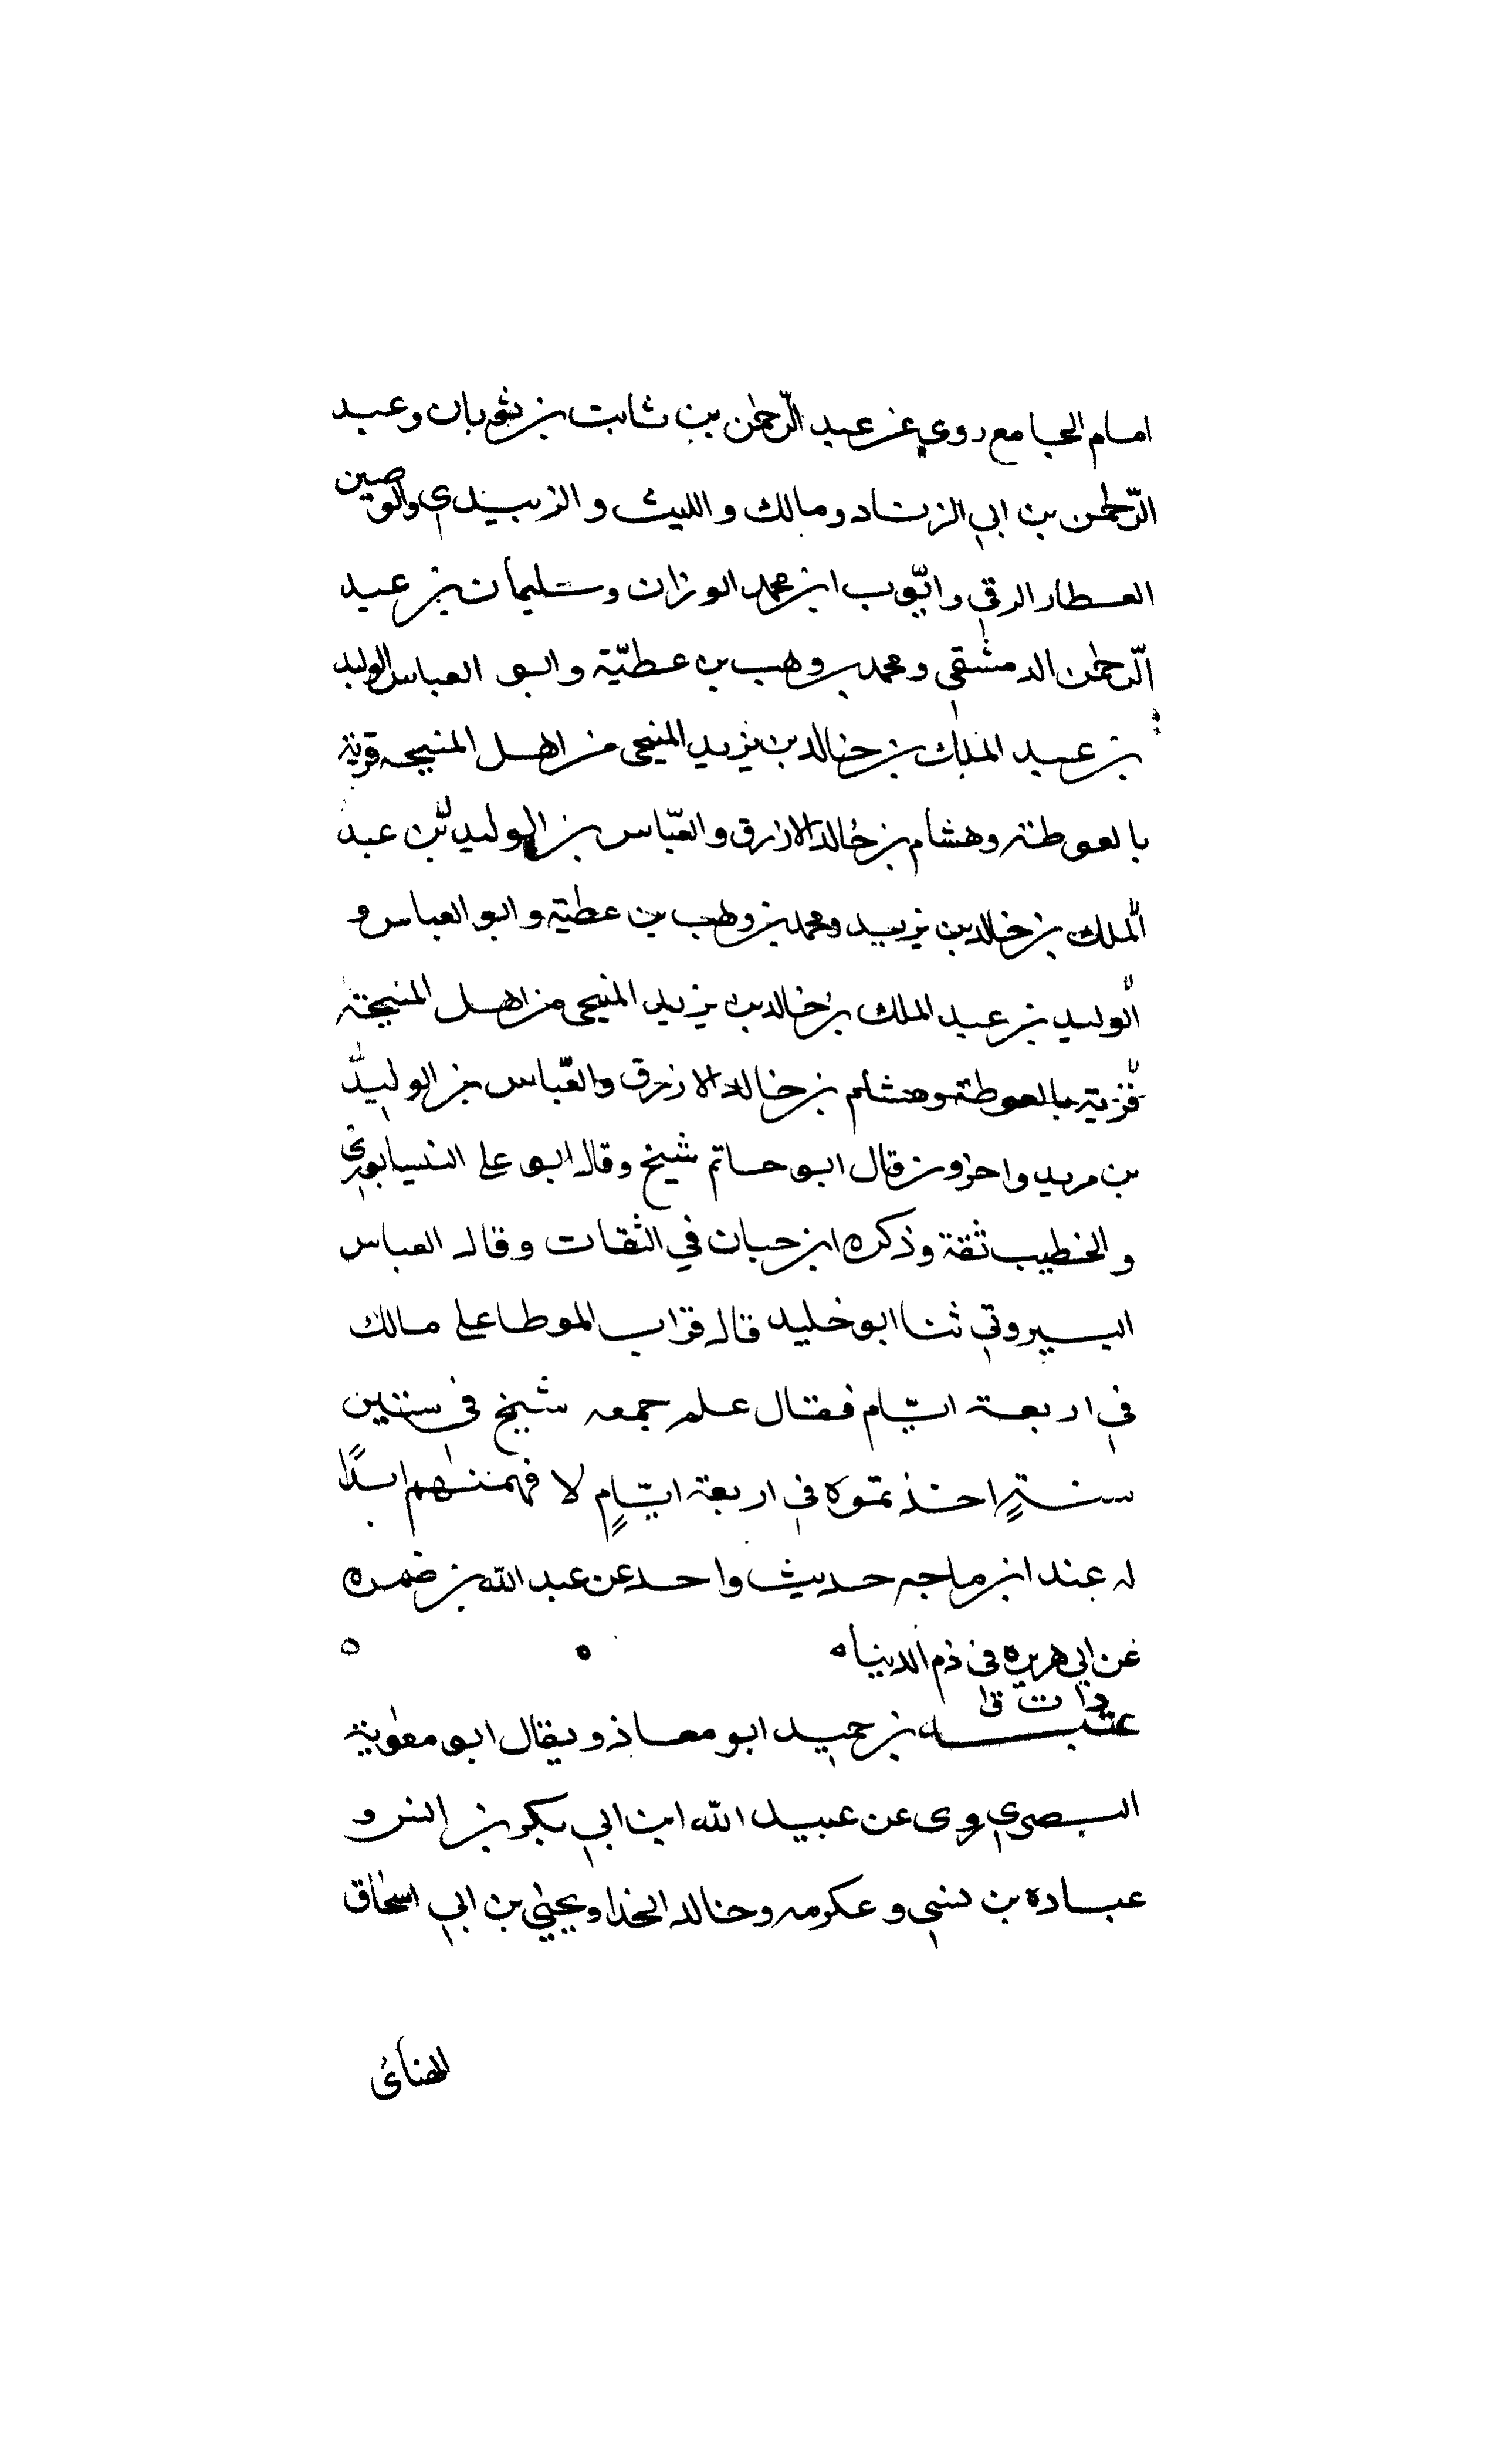 امام الجامع روي عن عبد الرّحمٰن بن ثابت بن ثوبان وعبد
الرّحمٰن بن ابي الزناد ومالك والليث والزبيدي والوضين
العطار الرقي وايّوب ابن محمد الوزان وسليمان بن عبد
الرّحمٰن الدمشقي ومحمد بن وهب بن عطيّة وابو العباس الوليد
بن عبد الملك بن خالد بن يزيد المنيحى من اهل المنيحه قرية
بالغوطة وهشام بن خالد الازرق والعبّاس بن الوليد بن عبد
الملك بن خالد بن يزيد ومحمد بن وهب بن عطية وابو العباس و
الوليد بن عبد الملك بن خالد بن يزيد المنيحى من اهل المنيحة
قرية بالغوطة وهشام بن خالد الازرق والعبّاس بن الوليد
بن مزيد واخرون قال ابو حاتم شيخ وقال ابو على النيسابورى
والخطيب ثقة وذكره ابن حبان في الثقات وقال العباس
البيروتي ثنا ابو خليد قال قرات الموطا على مالك
في اربعة ايّام فقال علم جمعه شيخ فى ستين
سنةٍ اخذتموه في اربعة ايّامٍ لا فهمتهم ابدًا
له عند ابن ماجه حديث واحد عن عبد الله بن ضمره
عن ابي هريره فى ذم الدنيا ه
د ت ق
عتبه بن حميد ابو معاذ ويقال ابو معٰوية
البصري روى عن عبيد الله ابن ابي بكر بن انس و
عباده بن نسي وعكرمه وخالد الحذا ويحيٰي بن ابي اسحٰاق
الهنائى